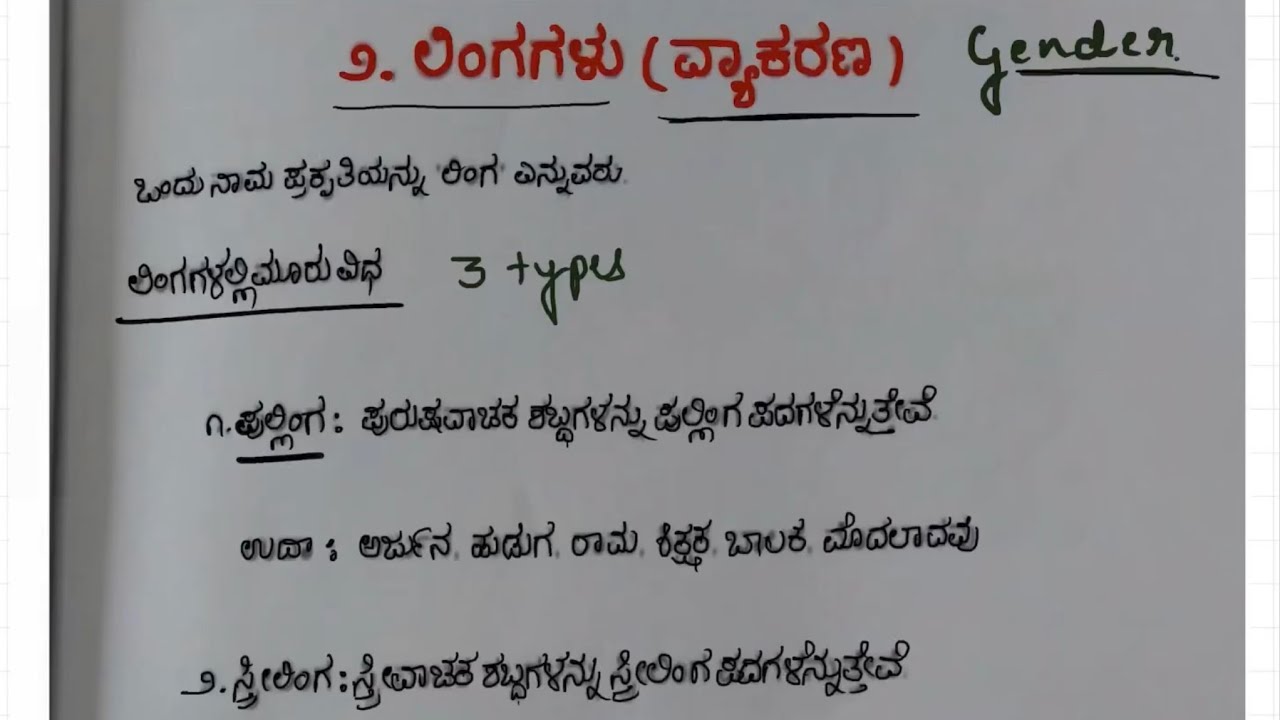 ೨. ಲಿಂಗಗಳು ( ವ್ಯಾಕರಣ ) Gender.
ಒಂದು ನಾಮ ಪ್ರಕೃತಿಯನ್ನು 'ಲಿಂಗ' ಎನ್ನುವರು.
ಲಿಂಗಗಳಲ್ಲಿ ಮೂರು ವಿಧ 3 types
೧. ಪುಲ್ಲಿಂಗ : ಪುರುಷವಾಚಕ ಶಬ್ಧಗಳನ್ನು ಪುಲ್ಲಿಂಗ ಪದಗಳೆನ್ನುತ್ತೇವೆ.
ಉದಾ : ಅರ್ಜುನ, ಹುಡುಗ, ರಾಮ, ಬಾಲಕ, ಮೊದಲಾದವು
೨. ಸ್ತ್ರೀಲಿಂಗ : ಸ್ತ್ರೀವಾಚಕ ಶಬ್ಧಗಳನ್ನು ಸ್ತ್ರೀಲಿಂಗ ಪದಗಳೆನ್ನುತ್ತೇವೆ